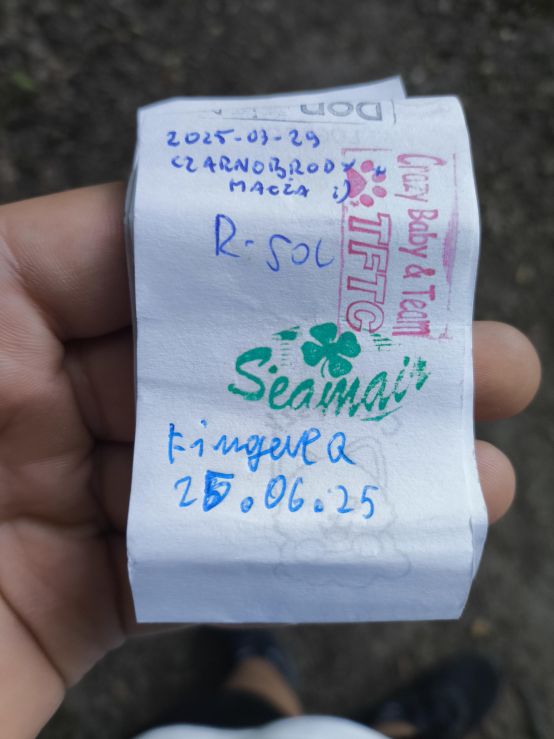 Don
2025-03-29
CZARNOBRODY +
MAGZA :)
R-SOL
Crazy Baby & Team
TFTC
Seamair
FingerQ
25.06.25